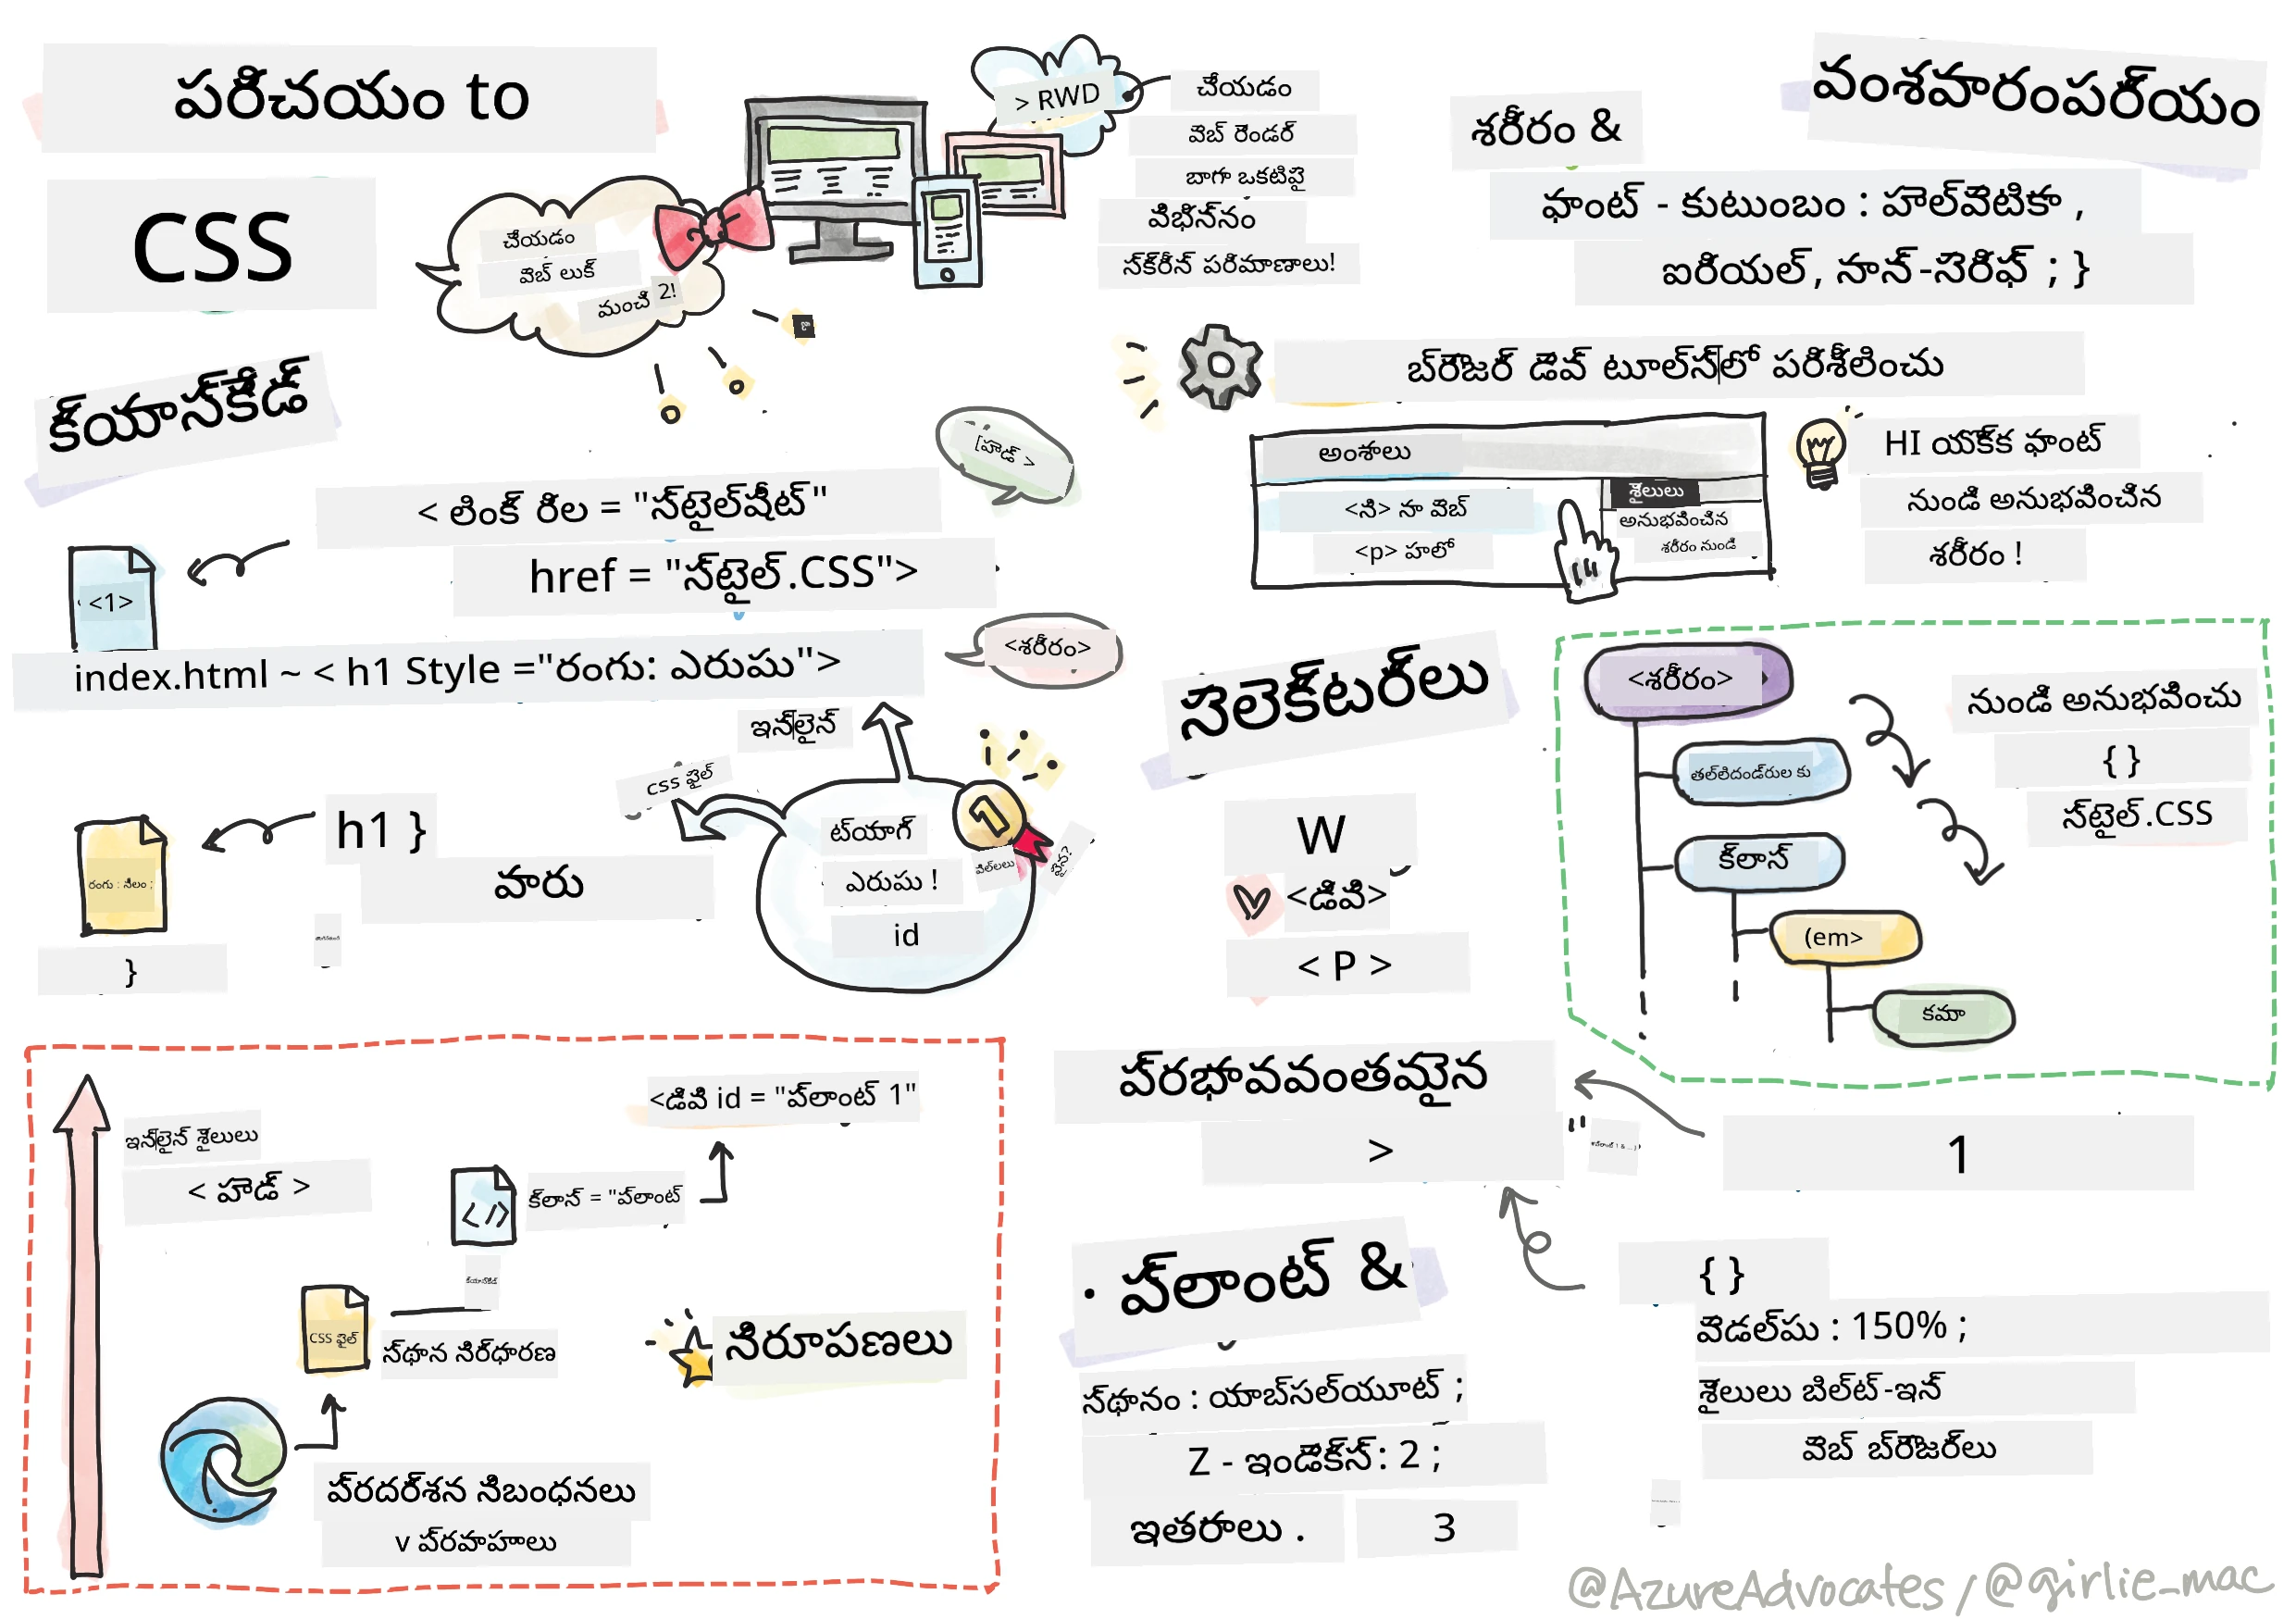 పరిచయం to
CSS
చేయడం
వెబ్ లుక్
మంచి 2!
> RWD
చేయడం
వెబ్ రెండర్
బాగా ఒకటిపై
విభిన్నం
స్క్రీన్ పరిమాణాలు!
శరీరం &
వంశపారంపర్యం
ఫాంట్ - కుటుంబం : హెల్వెటికా ,
ఐరియల్, నాన్-సెరిఫ్ ; }
బ్రౌజర్ డెవ్ టూల్స్‌లో పరిశీలించు
అంశాలు
<ని> నా వెబ్
<p> హలో
శైలులు
అనుభవించిన
శరీరం నుండి
HI యొక్క ఫాంట్
నుండి అనుభవించిన
శరీరం !
క్యాస్కేడ్
[హెడ్ >
< లింక్ రిల = "స్టైల్‌షీట్"
href = "స్టైల్.CSS">
<1>
index.html ~ < h1 Style ="రంగు: ఎరుపు">
<శరీరం>
ఇన్‌లైన్
css ఫైల్
h1 }
వారు
రంగు : నీలం ;
}
ట్యాగ్
ఎరుపు !
id
పిల్లలు
1
సెలెక్టర్‌లు
W
<డివి>
< P >
<శరీరం>
తల్లిదండ్రుల కు
క్లాస్
(em>
కమా
నుండి అనుభవించు
{ }
స్టైల్.CSS
ఇన్‌లైన్ శైలులు
< హెడ్ >
<డివి id = "ప్లాంట్ 1"
</>
క్లాస్ = "ప్లాంట్
క్యాస్కేడ్
CSS ఫైల్
స్థాన నిర్ధారణ
నిరూపణలు
ప్రదర్శన నిబంధనలు
v ప్రవాహాలు
ప్రభావవంతమైన
>
1
· ప్లాంట్ &
స్థానం : యాబ్‌సల్యూట్ ;
Z - ఇండెక్స్: 2 ;
ఇతరాలు .
3
{ }
వెడల్పు : 150% ;
శైలులు బిల్ట్-ఇన్
వెబ్ బ్రౌజర్‌లు
@AzureAdvocates / @girlie_mac